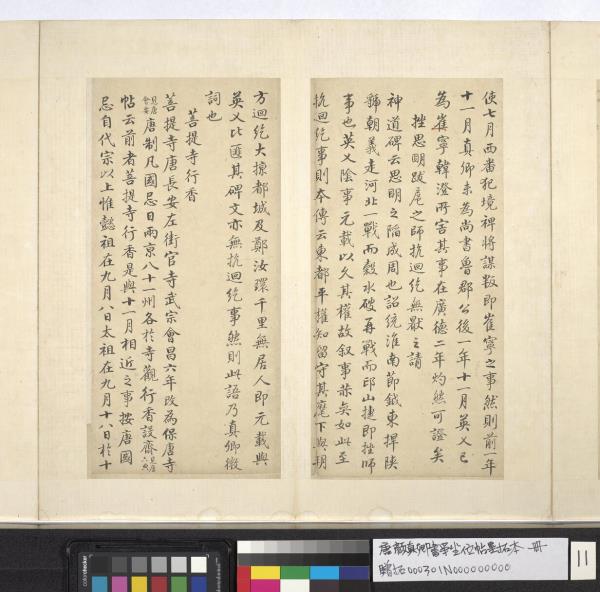 使七月西番犯境裨將謀叛即崔寧之事然則前一年
十一月真卿未為尚書魯郡公後一年十一月英乂已
為崔寧韓澄所害其事在廣德二年灼然可證矣
挫思明跋扈之師抗迴紇無厭之請
神道碑云思明之陷成周也詔統淮南節鉞東捍陝
虢朝義走河北一戰而穀水破再戰而邙山捷即挫師
事也英乂陰事元載以久其權故叙事恭矣如此至
抗迴紇事則本傳云東都平權知留守其麾下與朔
方迴紇大掠都城及鄭汝環千里無居人即元載與
英乂比匿其碑文亦無抗迴紇事然則此語乃真卿微
詞也
菩提寺行香
菩提寺唐長安左街官寺武宗會昌六年改為保唐寺
見唐會要唐制凡國忌日兩京八十一州各於寺觀行香設齋見唐六典
帖云前者菩提寺行香是與十一月相近之事按唐國
忌自代宗以上惟懿祖在九月八日太祖在九月十八日於十
唐顏真卿書爭坐位帖墨拓本 一冊
贈拓000301N000000000
11